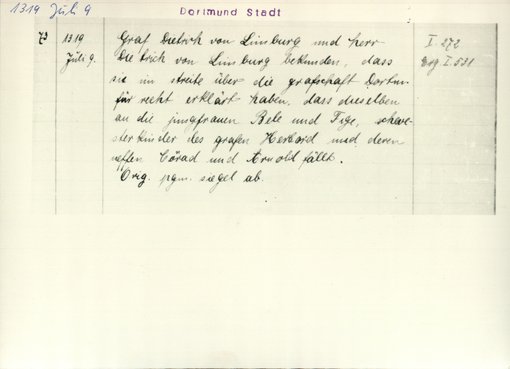 1319 Juli 9
Dortmund Stadt
73 1319 Graf Dietrich von Limburg und herr I 272
Juli 9. Dietrich von Limburg bekunden, dass Erg I 531
sie im streite über die grafschaft Dortm
für recht erklärt haben, dass dieselben
an die jungfrauen Bele und Fige, schwe-
sterkinder des grafen Herbord und deren
neffen und Arnold fällt.
Orig. pgm. siegel ab.